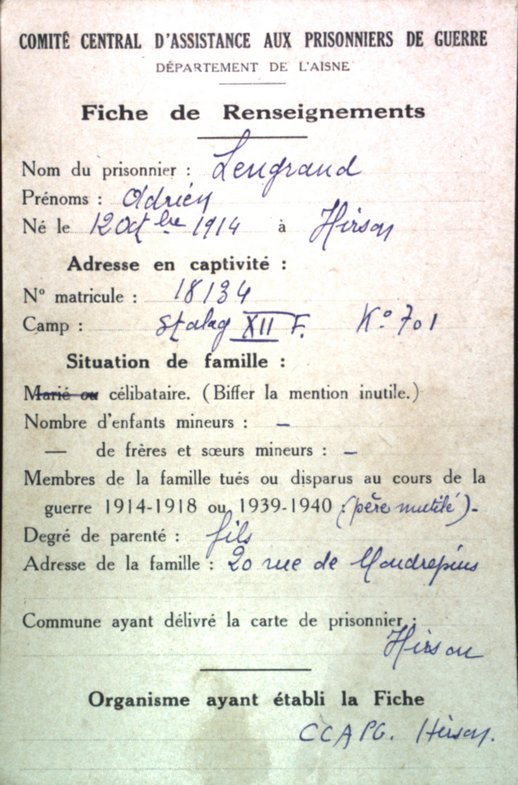 COMITÉ CENTRAL D'ASSISTANCE AUX PRISONNIERS DE GUERRE
DÉPARTEMENT DE L'AISNE
Fiche de Renseignements
Nom du prisonnier : Lengrand
Prénoms : Adrien
Né le 12 Octbre 1914 à Hirson
Adresse en captivité :
N° matricule : 18134
Camp : Stalag XII F. K° 701
Situation de famille :
Marié ou célibataire. (Biffer la mention inutile.)
Nombre d'enfants mineurs : –
— de frères et sœurs mineurs : –
Membres de la famille tués ou disparus au cours de la
guerre 1914-1918 ou 1939-1940 : (père mutilé) -
Degré de parenté : fils
Adresse de la famille : 20 rue de
Commune ayant délivré la carte de prisonnier :
Hirson
Organisme ayant établi la Fiche
CCAPG. Hirson.